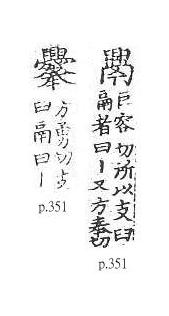 巨容切所以支臼
鬲者曰丨又方奉切
p.351
方勇切支
臼鬲曰丨
p.351